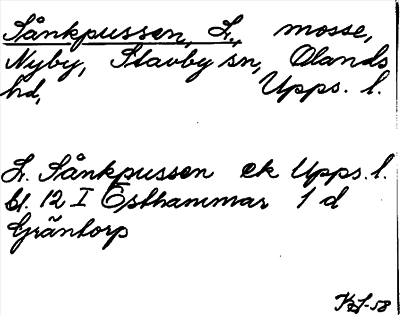 Sånkpussen, L., mosse,
Nyby, Stavby sn, Olands
hd, Upps. l.
L. Sånkpussen ek Upps. l.
bl. 12 I Östhammar 1 d
Gräntorp